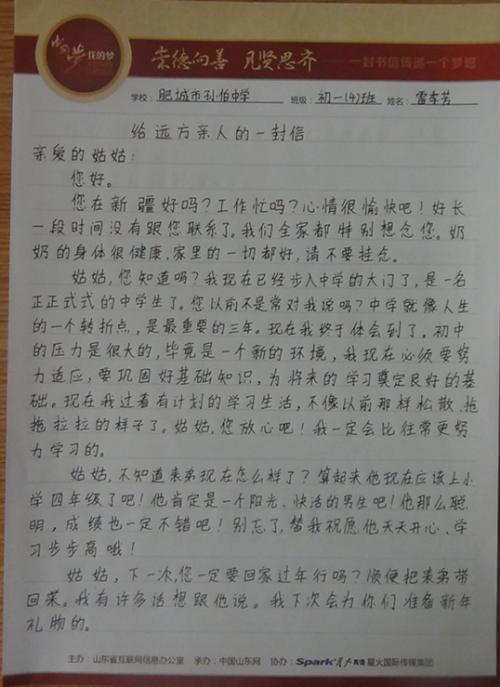 我的梦 崇德向善 见贤思齐 一封书信传递一个梦想
学校: 肥城市孙伯中学 班级: 初一(4)班 姓名: 雷春芳
给远方亲人的一封信
亲爱的姑姑:
您好。
您在新疆好吗?工作忙吗?心情很愉快吧!好长
一段时间没有跟您联系了。我们全家都特别想念您。奶
奶的身体很健康,家里的一切都好,请不要挂念。
姑姑,您知道吗?我现在已经步入中学的大门了,是一名
正正式式的中学生了。您以前不是常对我说吗?中学就像人生
的一个转折点,是最重要的三年。现在我终于体会到了。初中
的压力是很大的,毕竟是一个新的环境,我现在必须要努
力适应,要巩固好基础知识,为将来的学习奠定良好的基
础。现在我过着有计划的学习生活,不像以前那样松散、拖
拖拉拉的样子了。姑姑,您放心吧!我一定会比往常更努
力学习的。
姑姑,不知道表弟现在怎么样了?算起来他现在应该上小
学四年级了吧!他肯定是一个阳光、快活的男生吧!他那么聪
明,成绩也一定不错吧!别忘了,替我祝愿他天天开心、学
习步步高哦!
姑姑,下一次,您一定要回家过年行吗?顺便把表弟带
回来。我有许多话想跟他说。我下次会为你们准备新年
礼物的。
主办:山东省互联网信息办公室 承办:中国山东网 协办:Spark星火英语 星火国际传媒集团